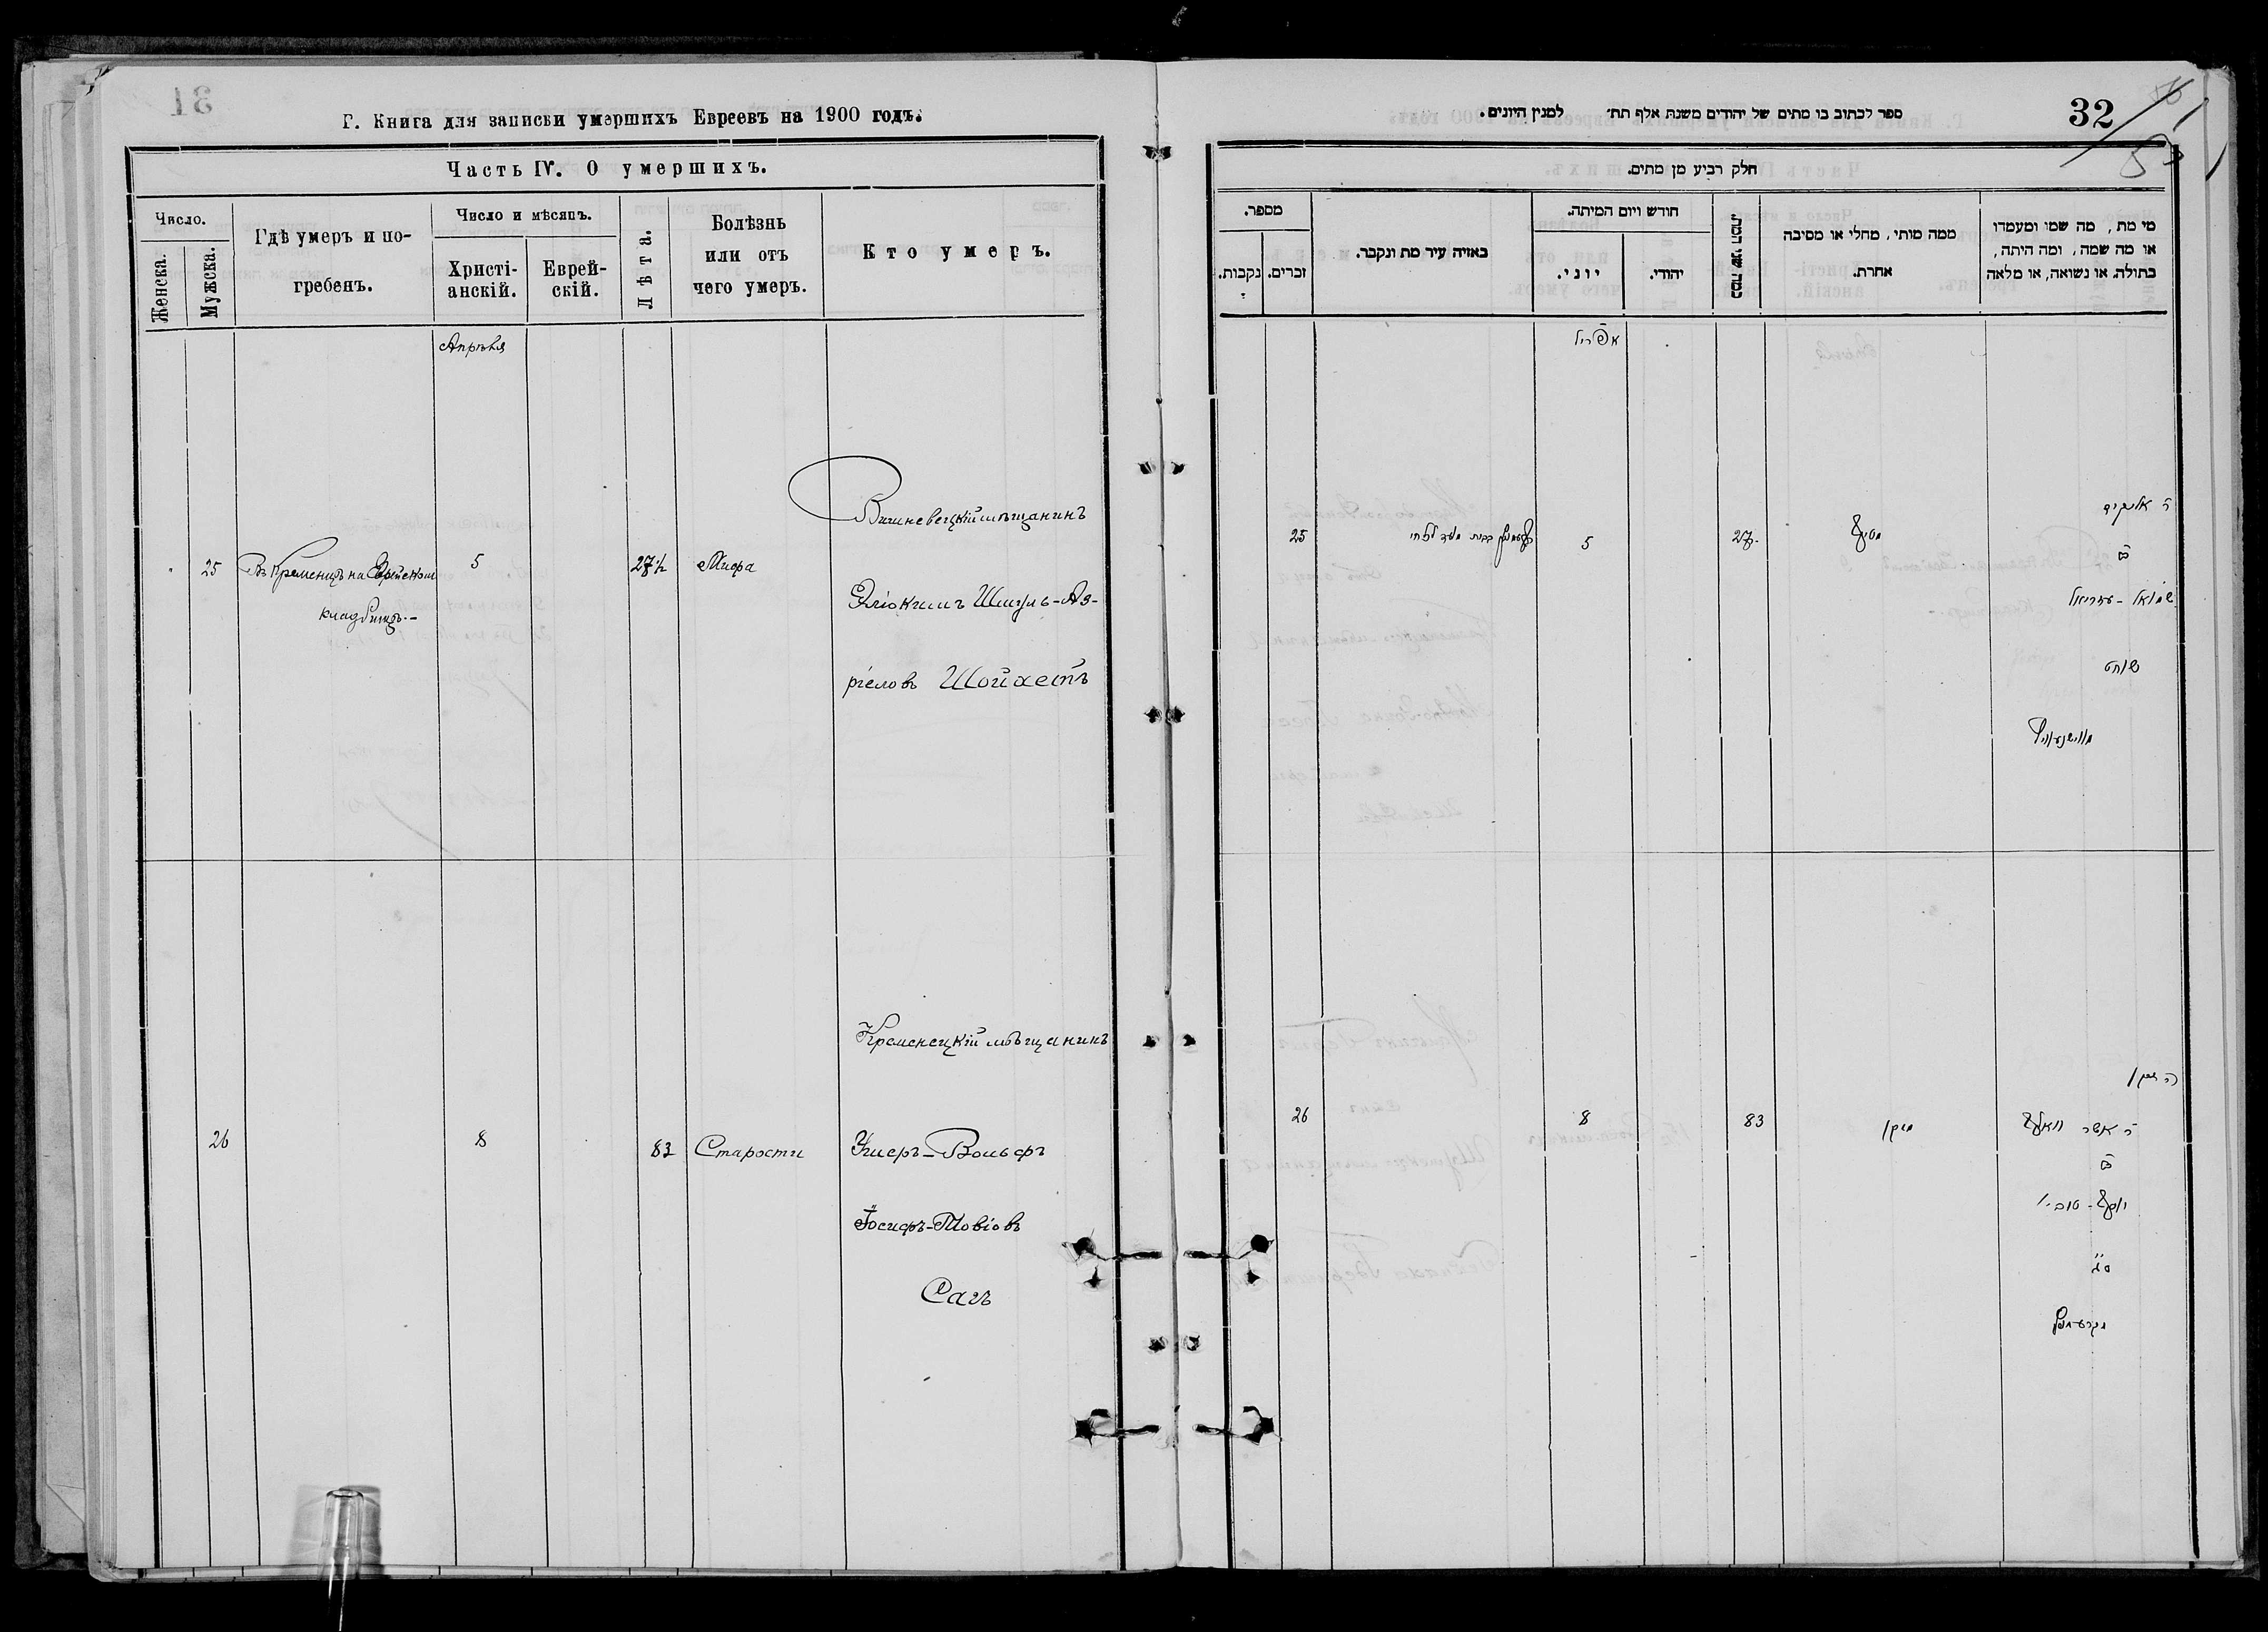 Г. Книга для записви умершихъ Евреевъ на 1900 годъ.
Часть IV. О умершихъ.
Число.
Женска.
Мужска.
Гдѣ умеръ и по-
гребенъ.
Число и мѣсяцъ.
Христі-
анскій.
Еврей-
скій.
Лѣта.
Болѣзнь
или отъ
чего умеръ.
Кто умеръ.
Апрѣля
Вишневецкій мѣщанинъ
25 Въ Кременцѣ на Еврейскомъ 5 27½ Тифа
Эліокимъ Шмуль-Аз-
кладбищѣ.-
ріеловъ Шойхетъ
Кременецкій мѣщанинъ
26 8 83 Старости Ушеръ-Вольфъ
Іосифъ-Товіовъ
Сагъ
32
ספר לכתוב בו מתים של יהודים משנת אלף תת׳ למנין היונים.
חלק רביע מן מתים.
מספר.
נקבות.
זכרים.
באזיה עיר מת ונקבר.
חודש ויום המיתה.
יוני.
יהודי.
כמה שני חייה.
ממה מותי, מחלי או מסיבה
אחרת.
מי מת, מה שמו ומעמדו
או מה שמה, ומה היתה,
בתולה. או נשואה, או מלאה
אפריל
ר אליקים
25 5 27 טיף
ב
שמואל - עזריאל
שוחט
מווישנעוויץ
הזקן
26 8 83 זקן ר אשר וואלף
ב
יוסף - טובי׳
סג
מקרעמניץ